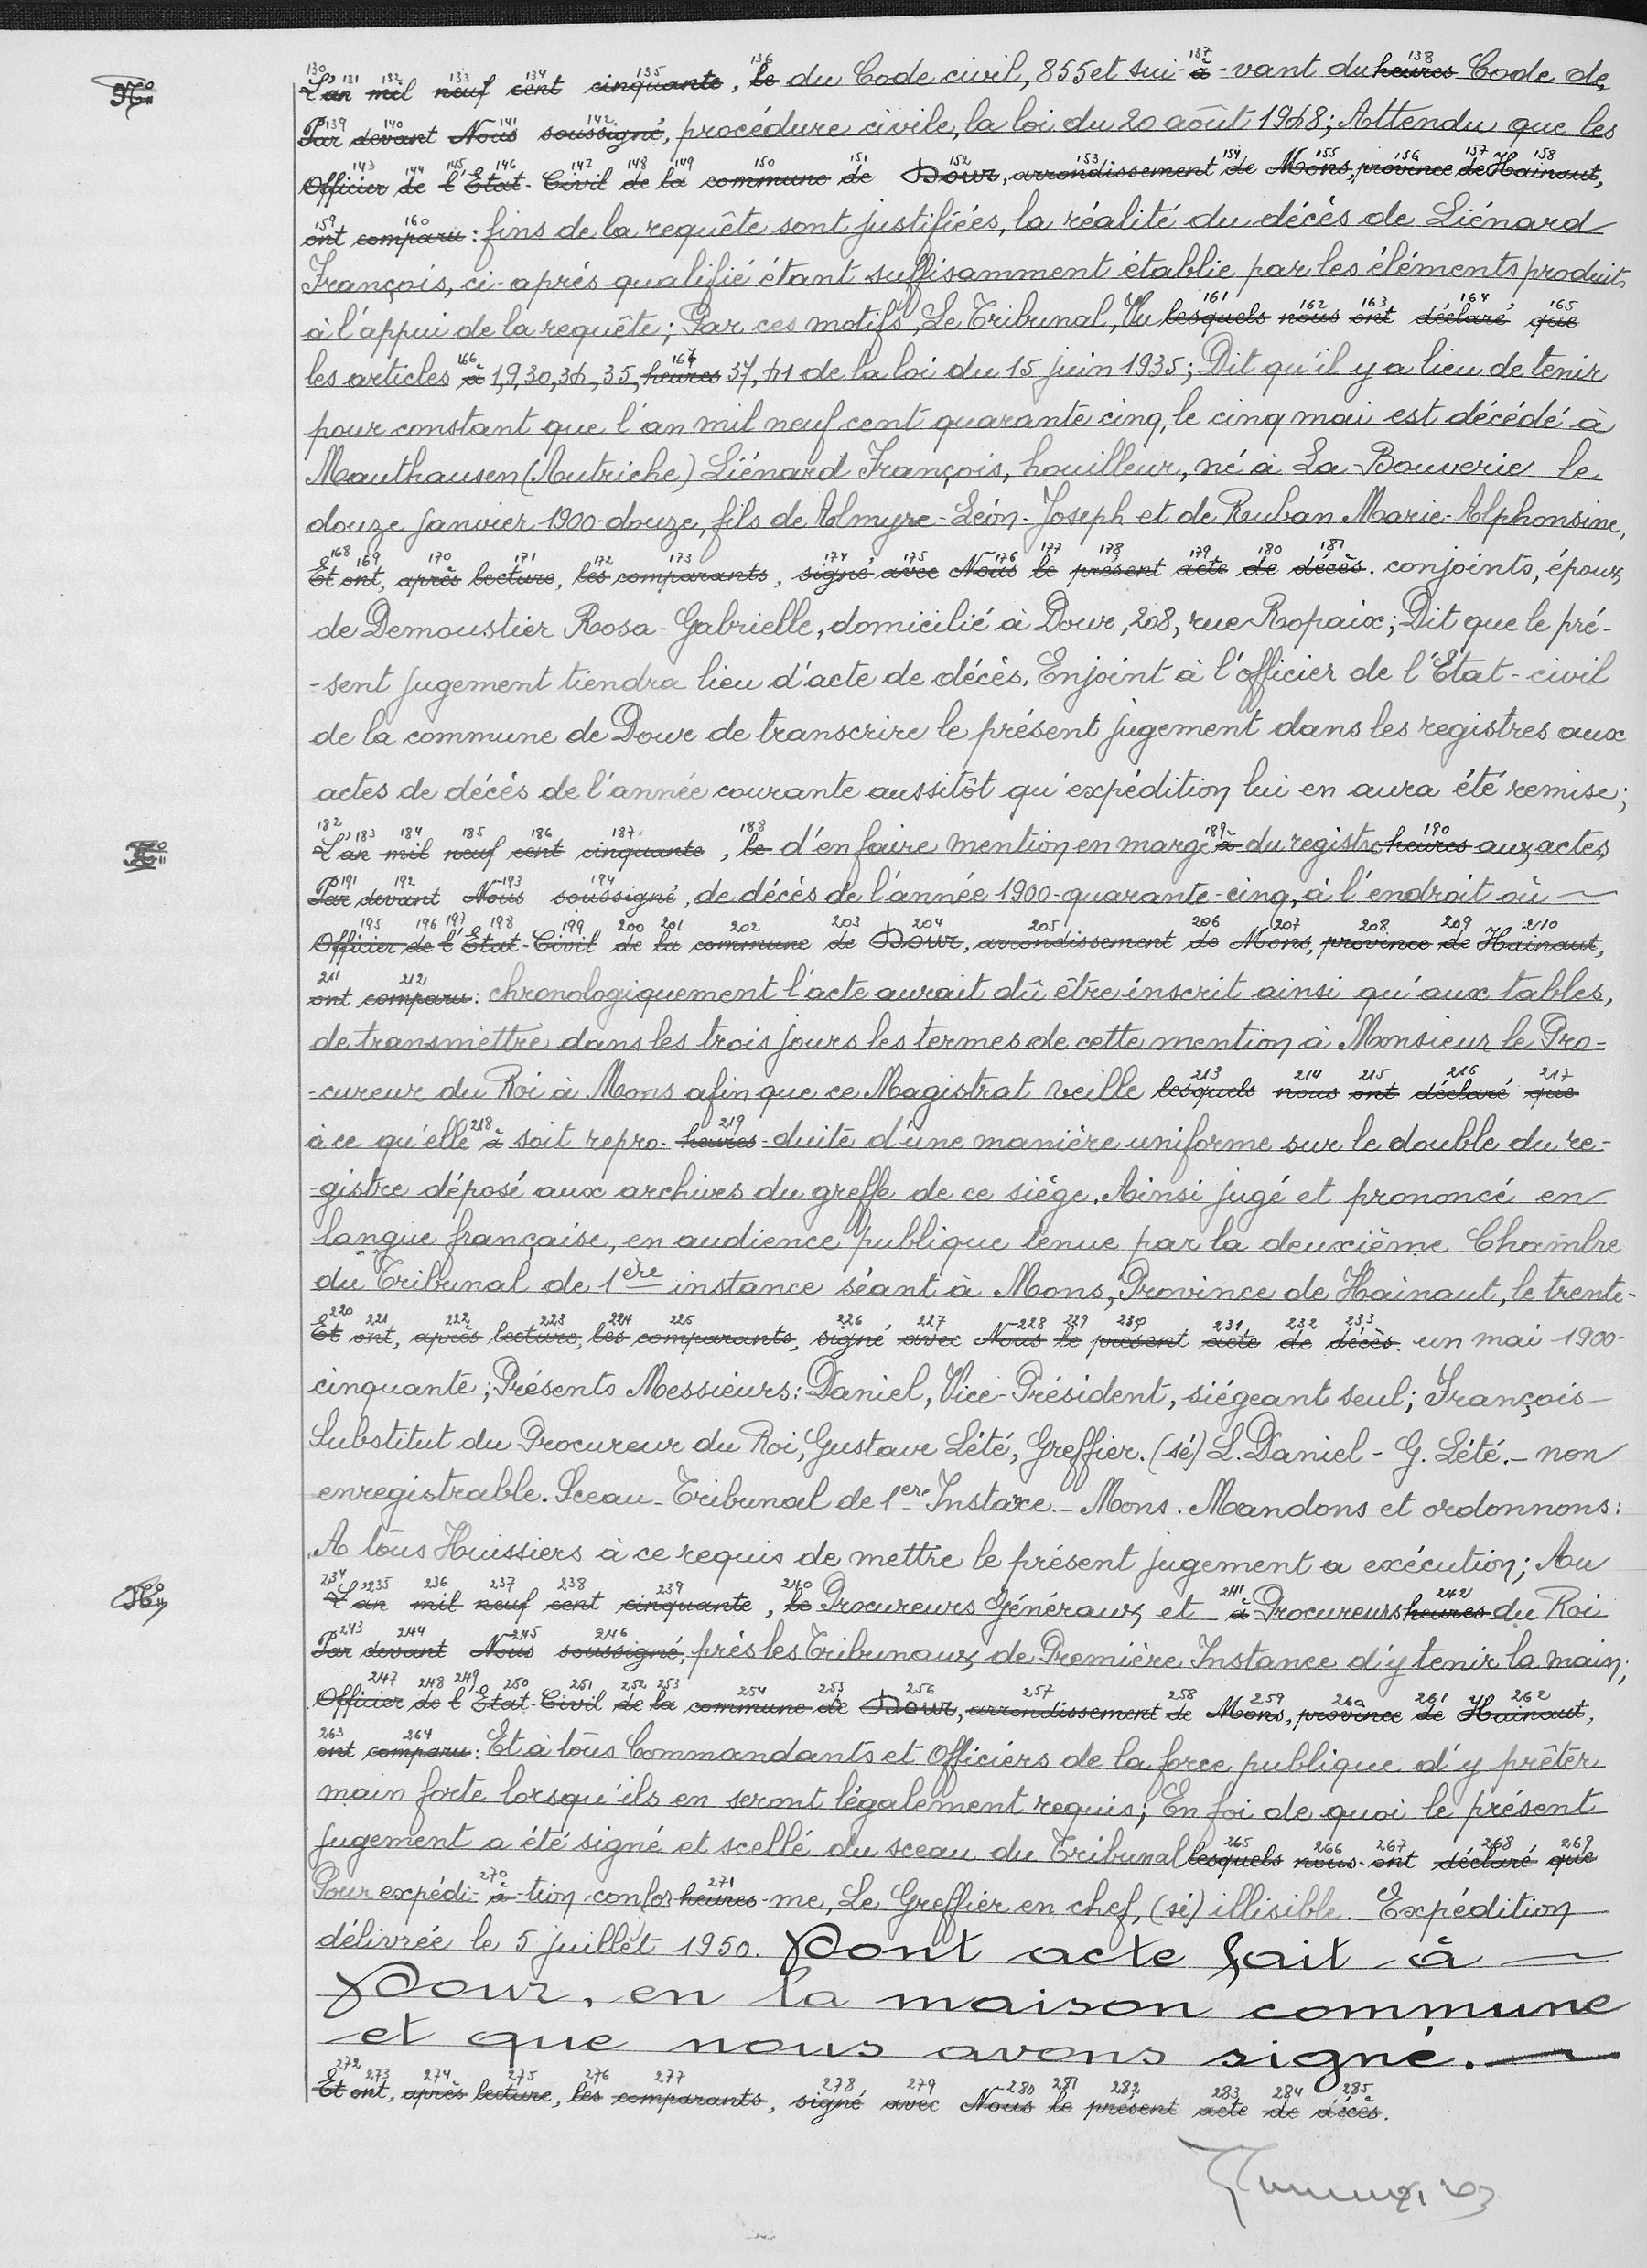 N° L'an mil neuf cent cinquante, le du Code civil, 855 et sui- à -vant du heures Code de
Par devant Nous soussigné, procédure civile, la loi du 20 août 1948; Attendu que les
Officier de l'État-Civil de la commune de Dour, arrondissement de Mons, province de Hainaut,
ont comparu: fins de la requête sont justifiées, la réalité du décès de Liénard
François, ci-après qualifié étant suffisamment établie par les éléments produits
à l'appui de la requête; Par ces motifs, Le Tribunal, Vu lesquels nous ont déclaré que
les articles à 1, 9, 30, 34, 35, heures 37, 41 de la loi du 15 juin 1935; Dit qu'il y a lieu de tenir
pour constant que l'an mil neuf cent quarante cinq, le cinq mai est décédé à
Mauthausen (Autriche) Liénard François, houilleur, né à La Bouverie le
douze janvier 1900-douze, fils de Almyre-Léon-Joseph et de Ruban Marie-Alphonsine,
Et ont, après lecture, les comparants, signé avec Nous le présent acte de décès. conjoints, époux
de Demoustier Rosa-Gabrielle, domicilié à Dour, 208, rue Ropaix; Dit que le pré-
-sent jugement tiendra lieu d'acte de décès, Enjoint à l'officier de l'État-civil
de la commune de Dour de transcrire le présent jugement dans les registres aux
actes de décès de l'année courante aussitôt qu'expédition lui en aura été remise;
N° L'an mil neuf cent cinquante, le d'en faire mention en marge à du registre heures aux actes
Par devant Nous soussigné, de décès de l'année 1900-quarante-cinq, à l'endroit où —
Officier de l'État-Civil de la commune de Dour, arrondissement de Mons, province de Hainaut,
ont comparu: chronologiquement l'acte aurait dû être inscrit ainsi qu'aux tables,
de transmettre dans les trois jours les termes de cette mention à Monsieur le Pro-
-cureur du Roi à Mons afin que ce Magistrat veille lesquels nous ont déclaré que
à ce qu'elle à soit repro- heures -duite d'une manière uniforme sur le double du re-
-gistre déposé aux archives du greffe de ce siège. Ainsi jugé et prononcé en
langue française, en audience publique tenue par la deuxième Chambre
du Tribunal de 1ère instance séant à Mons, Province de Hainaut, le trente-
Et ont, après lecture, les comparants, signé avec Nous le présent acte de décès. un mai 1900-
cinquante; Présents Messieurs: Daniel, Vice-Président, siégeant seul; François-
Substitut du Procureur du Roi, Gustave Lété, Greffier. (sé) L. Daniel - G. Lété.- non
enregistrable. Sceau-Tribunal de 1ere Instance.- Mons. Mandons et ordonnons:
A tous Huissiers à ce requis de mettre le présent jugement a exécution; Au
N° L'an mil neuf cent cinquante, le Procureurs Généraux et à Procureurs heures du Roi
Par devant Nous soussigné, près les Tribunaux de Première Instance d'y tenir la main;
Officier de l'État-Civil de la commune de Dour, arrondissement de Mons, province de Hainaut,
ont comparu: Et à tous Commandants et Officiers de la force publique d'y prêter
main forte lorsqu'ils en seront légalement requis; En foi de quoi le présent
jugement a été signé et scellé du sceau du Tribunal lesquels nous ont déclaré que
Pour expédi- à -tion confor- heures -me, Le Greffier en chef, (sé) illisible. Expédition
délivrée le 5 juillet 1950. Dont acte fait à —
Dour, en la maison commune
et que nous avons signé. —
Et ont, après lecture, les comparants, signé avec Nous le présent acte de décès.